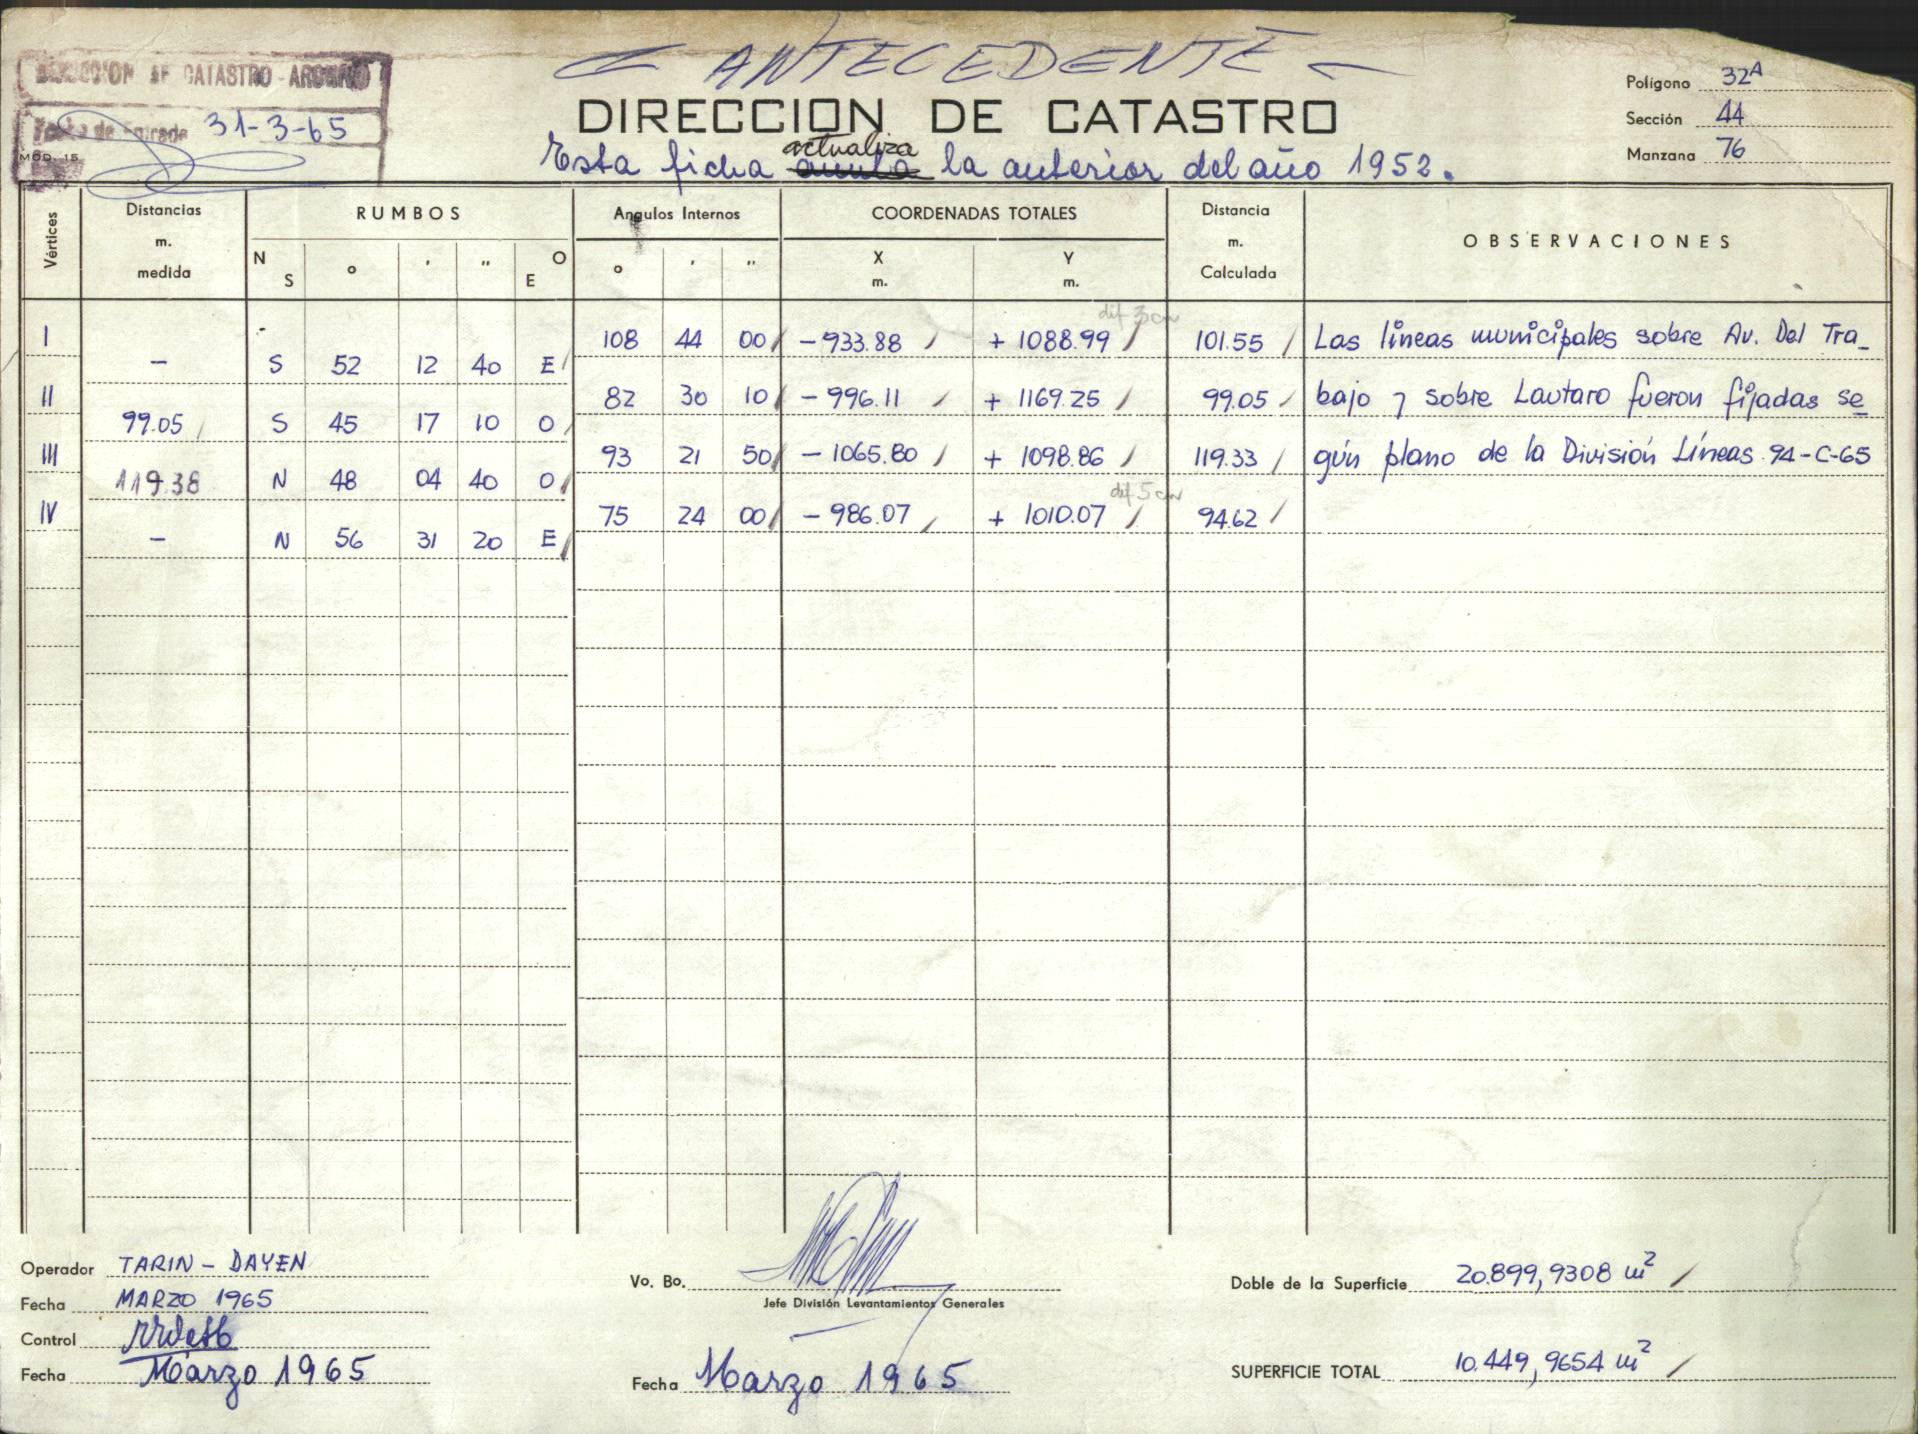 ANTECEDENTE
DIRECCION DE CATASTRO
DIRECCION DE CATASTRO - ARCHIVO
Fecha de Entrada 31-3-65
MOD. 15
Polígono 32A
Sección 44
Manzana 76
actualiza
Esta ficha anula la anterior del año 1952.
Vértices Distancias m. medida RUMBOS Angulos Internos COORDENADAS TOTALES Distancia m. Calculada OBSERVACIONES
N S ° ' " O E ° ' " X m. Y m.
dif 3 cm
I 108 44 00 -933.88 +1088.99 101.55 Las líneas municipales sobre Av. Del Tra_
— S 52 12 40 E
II 82 30 10 -996.11 +1169.25 99.05 bajo y sobre Lautaro fueron fijadas se
99.05 S 45 17 10 O
III 93 21 50 -1065.80 +1098.86 119.33 gún plano de la División Líneas 94-C-65
119.38 N 48 04 40 O
dif 5 cm
IV 75 24 00 -986.07 +1010.07 94.62
— N 56 31 20 E
Operador TARIN - DAYEN
Fecha MARZO 1965
Control
Fecha Marzo 1965
Vo. Bo.
Jefe División Levantamientos Generales
Fecha Marzo 1965
Doble de la Superficie 20.899,9308 m2
SUPERFICIE TOTAL 10.449,9654 m2